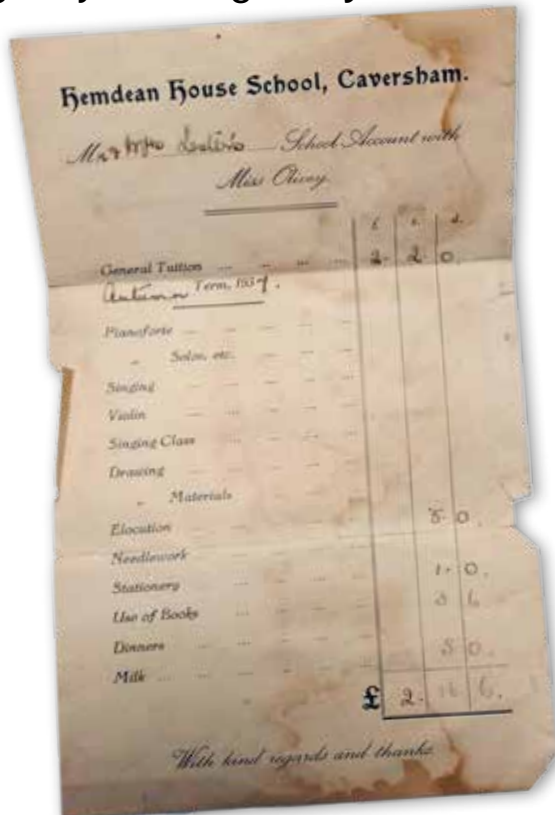 Hemdean House School, Caversham.
Mr & Mrs School Account with
Miss Olivey
£ s. d.
General Tuition ... ... ... ... 2. 2. 0.
Autumn Term, 1937.
Pianoforte
„ Solos, etc.
Singing
Violin
Singing Class
Drawing
„ Materials
Elocution 5. 0.
Needlework
Stationery 1. 0.
Use of Books 3 6
Dinners
Milk 5 0.
£ 2. 16 6.
With kind regards and thanks.